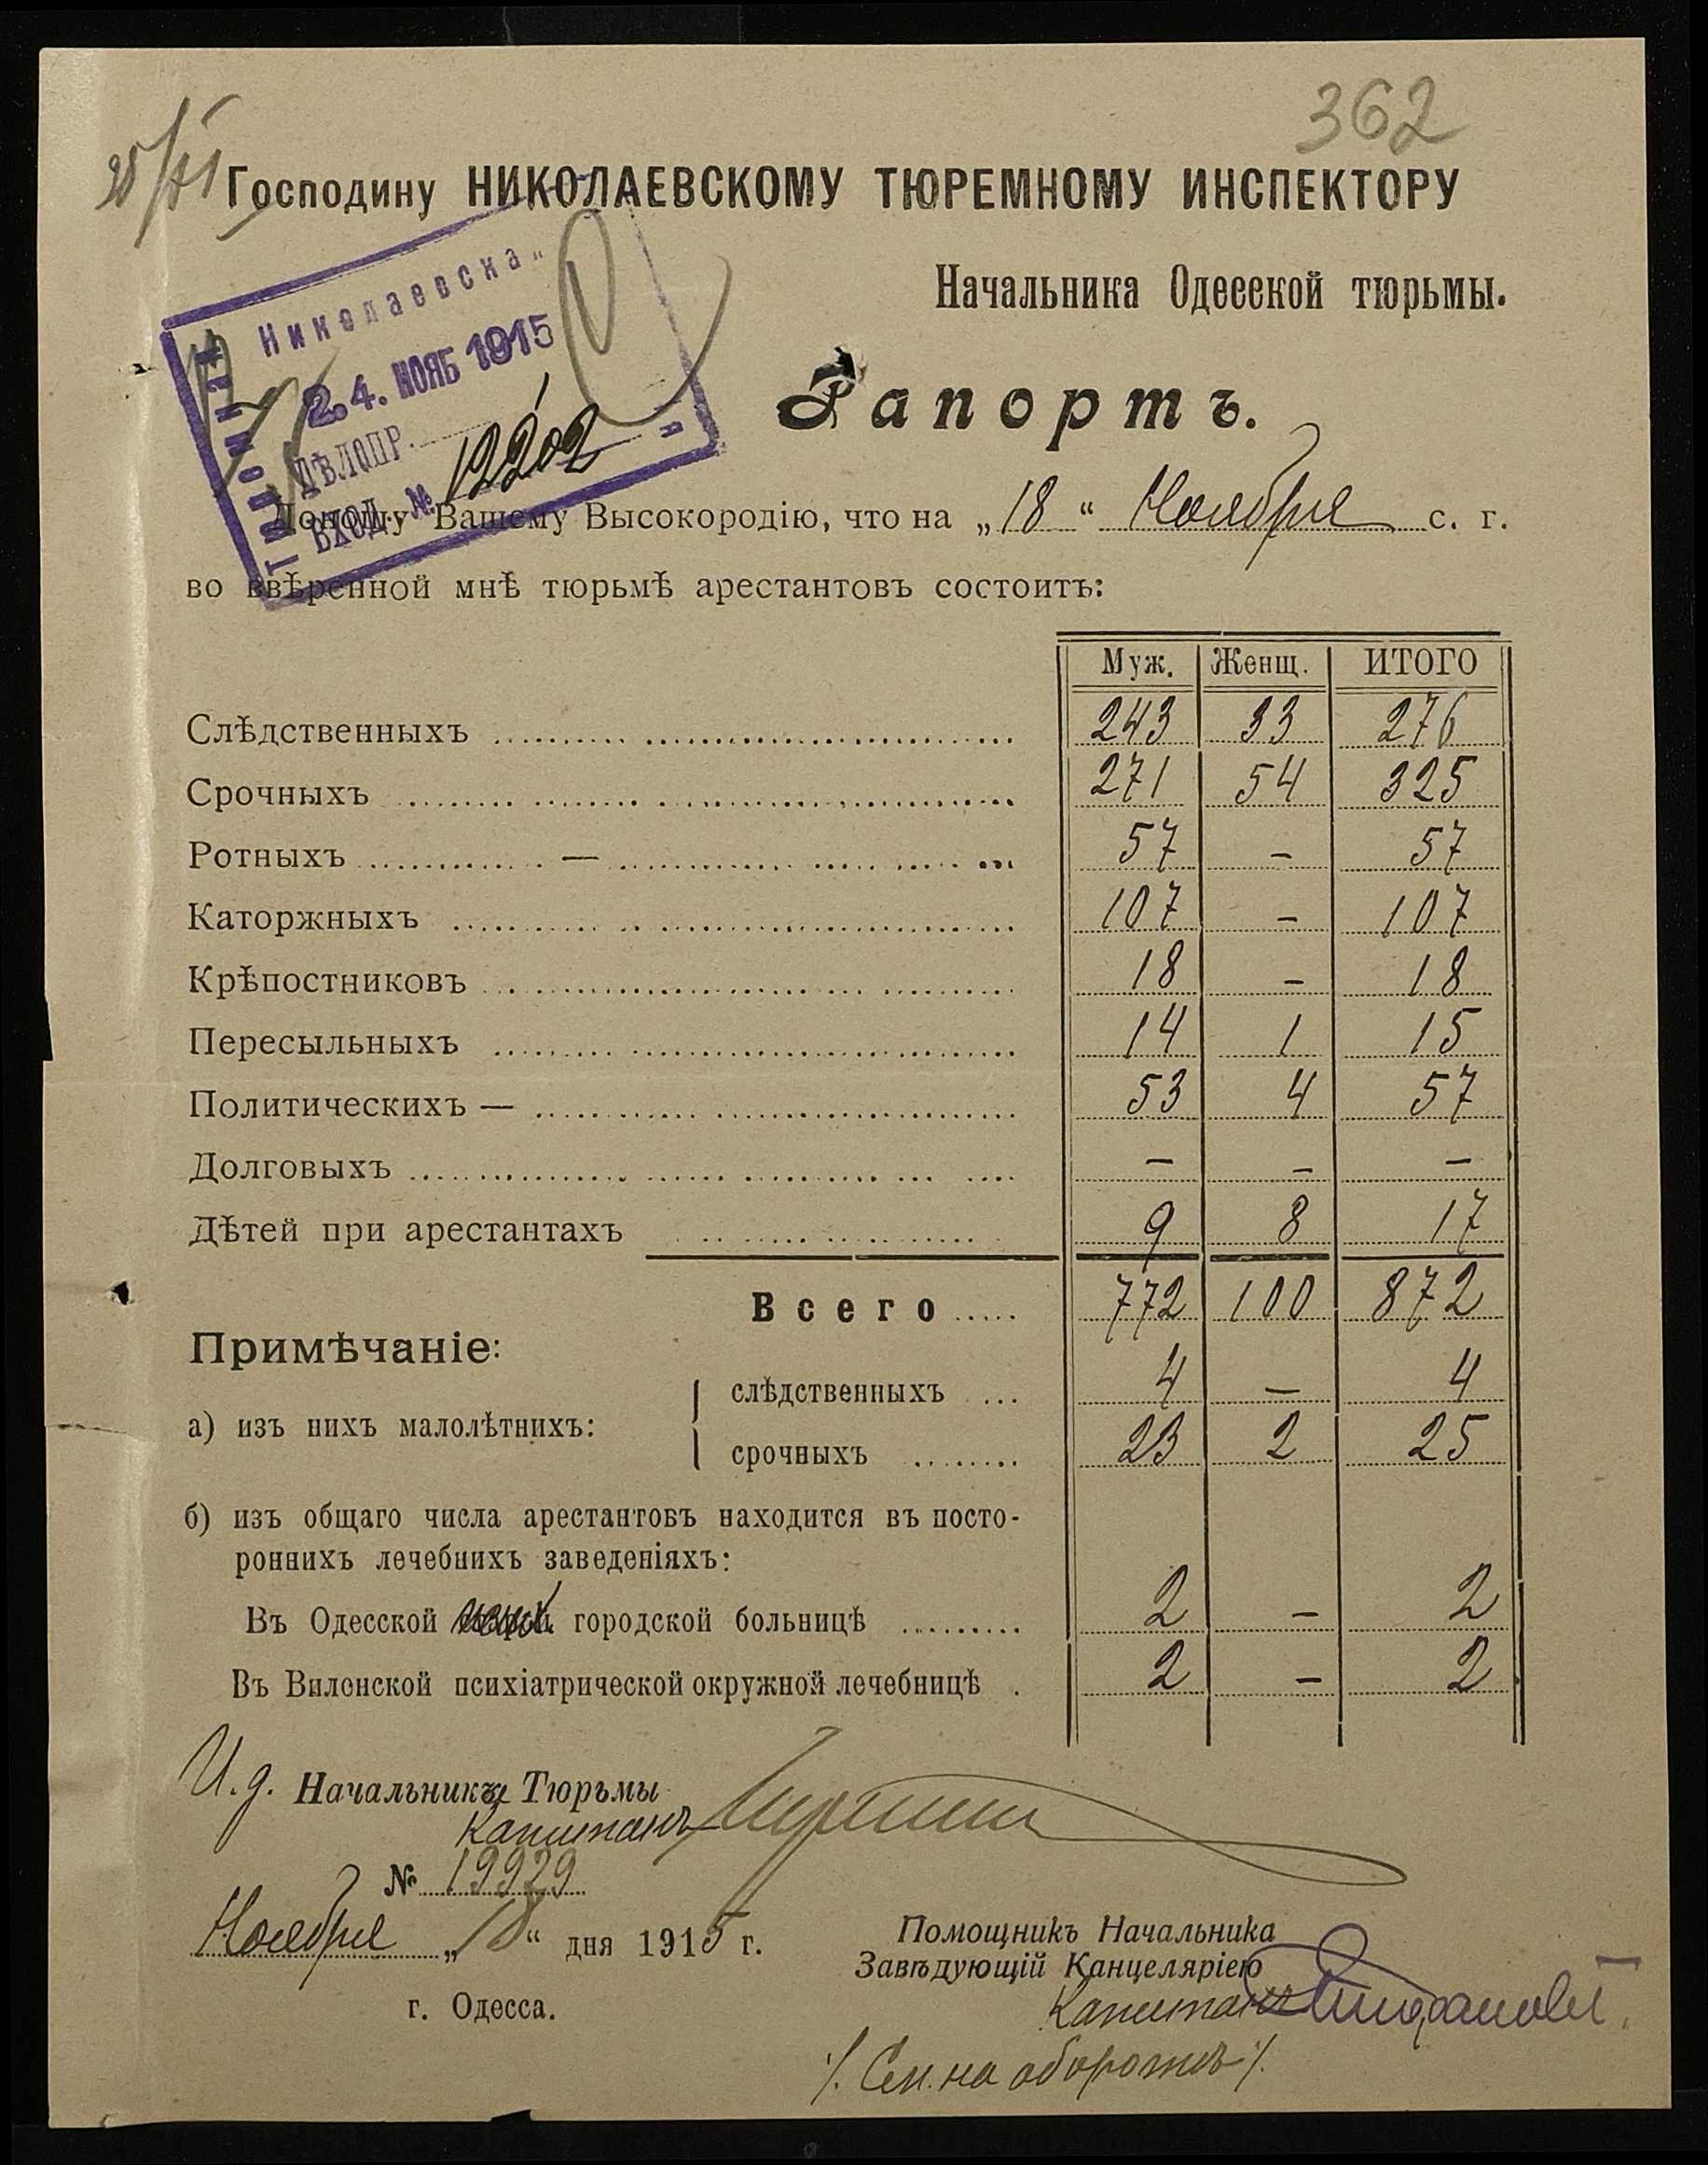 362
25/XI
Господину НИКОЛАЕВСКОМУ ТЮРЕМНОМУ ИНСПЕКТОРУ
Начальника Одесской тюрьмы.
Николаевска
24. НОЯБ 1915
ДѢЛОПР.
ВХОД. № 12202
Рапортъ.
Доношу Вашему Высокородію, что на „18“ Ноября с. г.
во ввѣренной мнѣ тюрьмѣ арестантовъ состоитъ:
Муж. Женщ. ИТОГО
Слѣдственныхъ 243 33 276
Срочныхъ 271 54 325
Ротныхъ — 57 - 57
Каторжныхъ 107 - 107
Крѣпостниковъ 18 - 18
Пересыльныхъ 14 1 15
Политическихъ — 53 4 57
Долговыхъ - - -
Дѣтей при арестантахъ 9 8 17
Всего 772 100 872
Примѣчаніе:
а) изъ нихъ малолѣтнихъ:
слѣдственныхъ 4 - 4
срочныхъ 23 2 25
б) изъ общаго числа арестантовъ находится въ посто-
роннихъ лечебнихъ заведеніяхъ:
Въ Одесской городской больницѣ 2 - 2
Въ Виленской психіатрической окружной лечебницѣ 2 - 2
И.д. Начальника Тюрьмы
Капитанъ
№ 19929
Ноября „18“ дня 1915 г.
г. Одесса.
Помощникъ Начальника
Завѣдующій Канцеляріею
Капитанъ
/. См. на оборотѣ /.